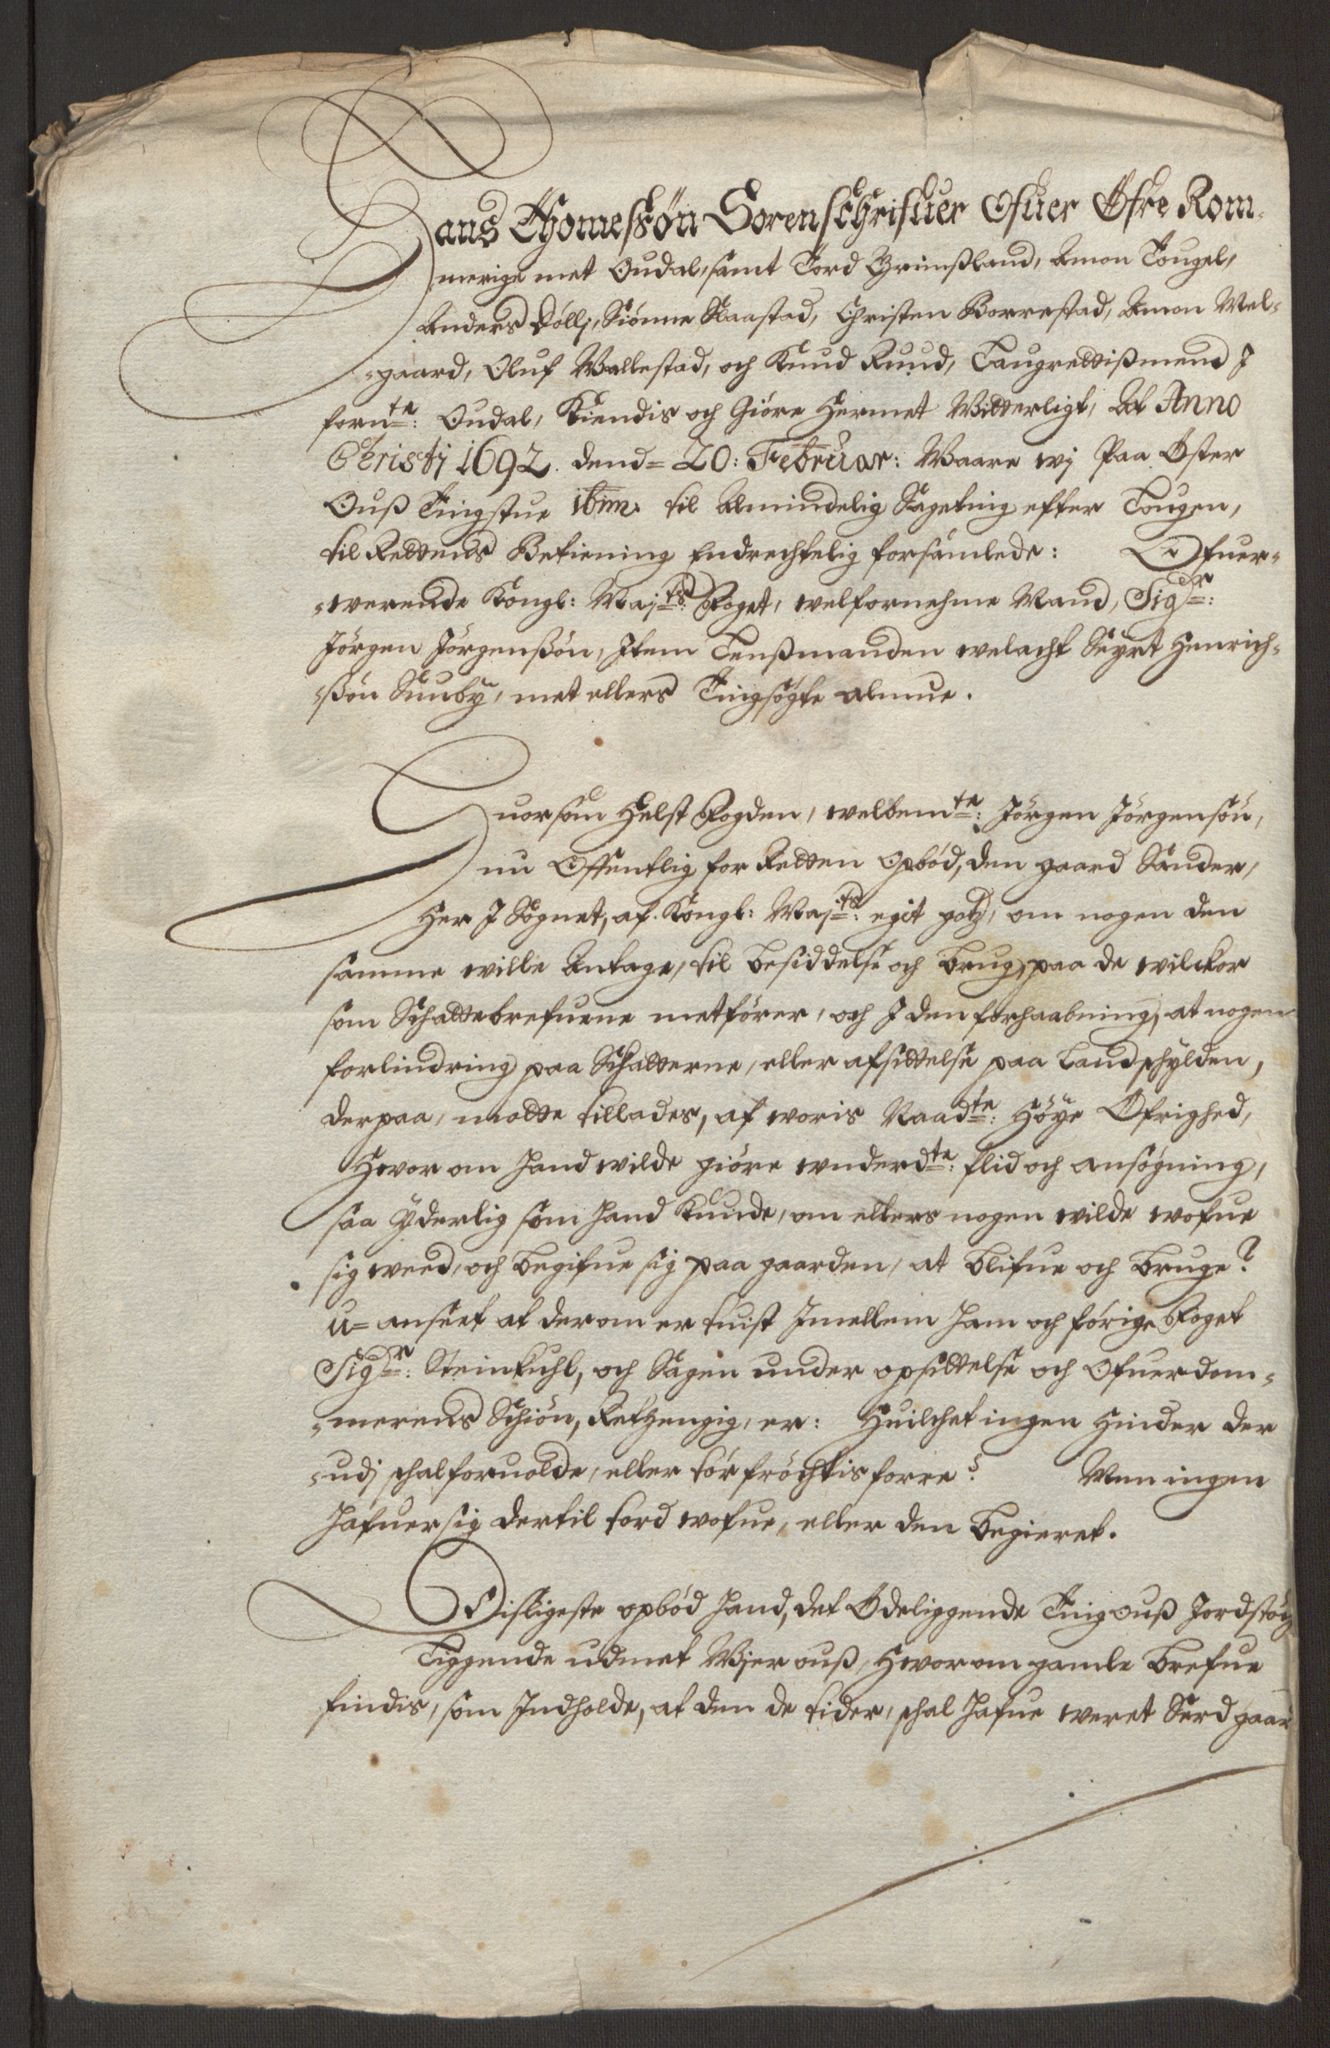 Hans Thomesßøn Sorenschrifuer Ofuer Øfre Rom-
merige met Oudal, samt Tord Grimsland, Amon Tougel,
Anders Døllj, Siønne Staastad, Christen Borrestad, Amon Mel-
-gaard, Oluf Vallestad, och Knud Ruud, Laugrettismend J
fornte: Oudal, Kiendis och Giøre Hermet Witterligt, At Anno
Christj 1692. dend= 20: Februar: Waare wj Paa Øster
Ouß Tingstue ibm. til Almindelig Sageting efter Lougen,
til Rettens Betiening Endrechtelig forsamlede: Ofuer-
-werende Kongl: Majts: Foget, welfornehme Mand, Sigr:
Jørgen Jørgensßøn, Item Lensßmanden welacht Seyrt Henrich-
-ßøn Sunby, met ellers Tingsøgte almue.
Huorsom Helst Fogden, welbemte: Jørgen Jørgensøn,
nu Offentlig for Retten Opbød, den gaard Sander,
Her J Sognet, af Kongl: Majts: egit gotz, om nogen den
samme wille Antage, til besiddelse och brug, paa de wilckor
som Schattebrefuene metfører, och J den forhaabning, at nogen
forlindring paa Schatterne, eller afsittelse paa Landschylden,
derpaa, motte tillades, af woris Naadte: Høye Øfrighed,
Hworom hand wilde giøre wnderdte: flid och ansøgning,
saa Yderlig som hand kunde, om ellers nogen wilde wofue
sig weed, och begifue sig paa gaarden, at blifue och bruge?
U= anseet at derom er tuist Imellem ham och forige Foget
Sigr: Steinkuhl, och Sagen under opsittelse och Ofuerdom-
-merens Schiøn, Rethengig, er: Huilchet ingen Hinder der
-udj schal foruolde, eller tør frøchtis forre? Men ingen
hafuer sig dertil tord wofue, eller den begieret.
Disligeste opbød hand, det Ødeliggende Ting ouß Jordstøch
Liggende udmet Mier ouß, Hworom gamle brefue
findis, som Indholde, at den de tider, schal hafue weret Serd gaar